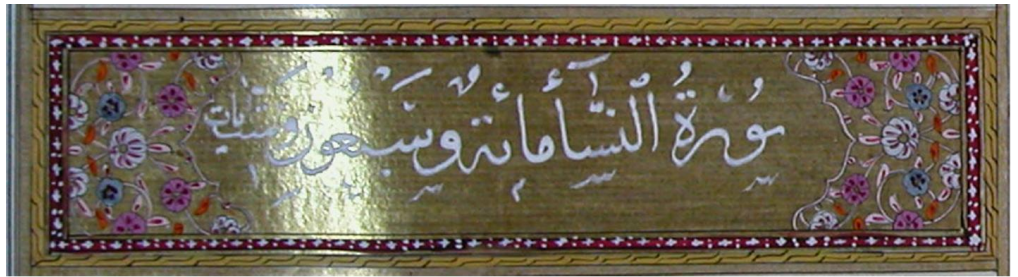 سورة النسآ مائة وسبعون وست آيات